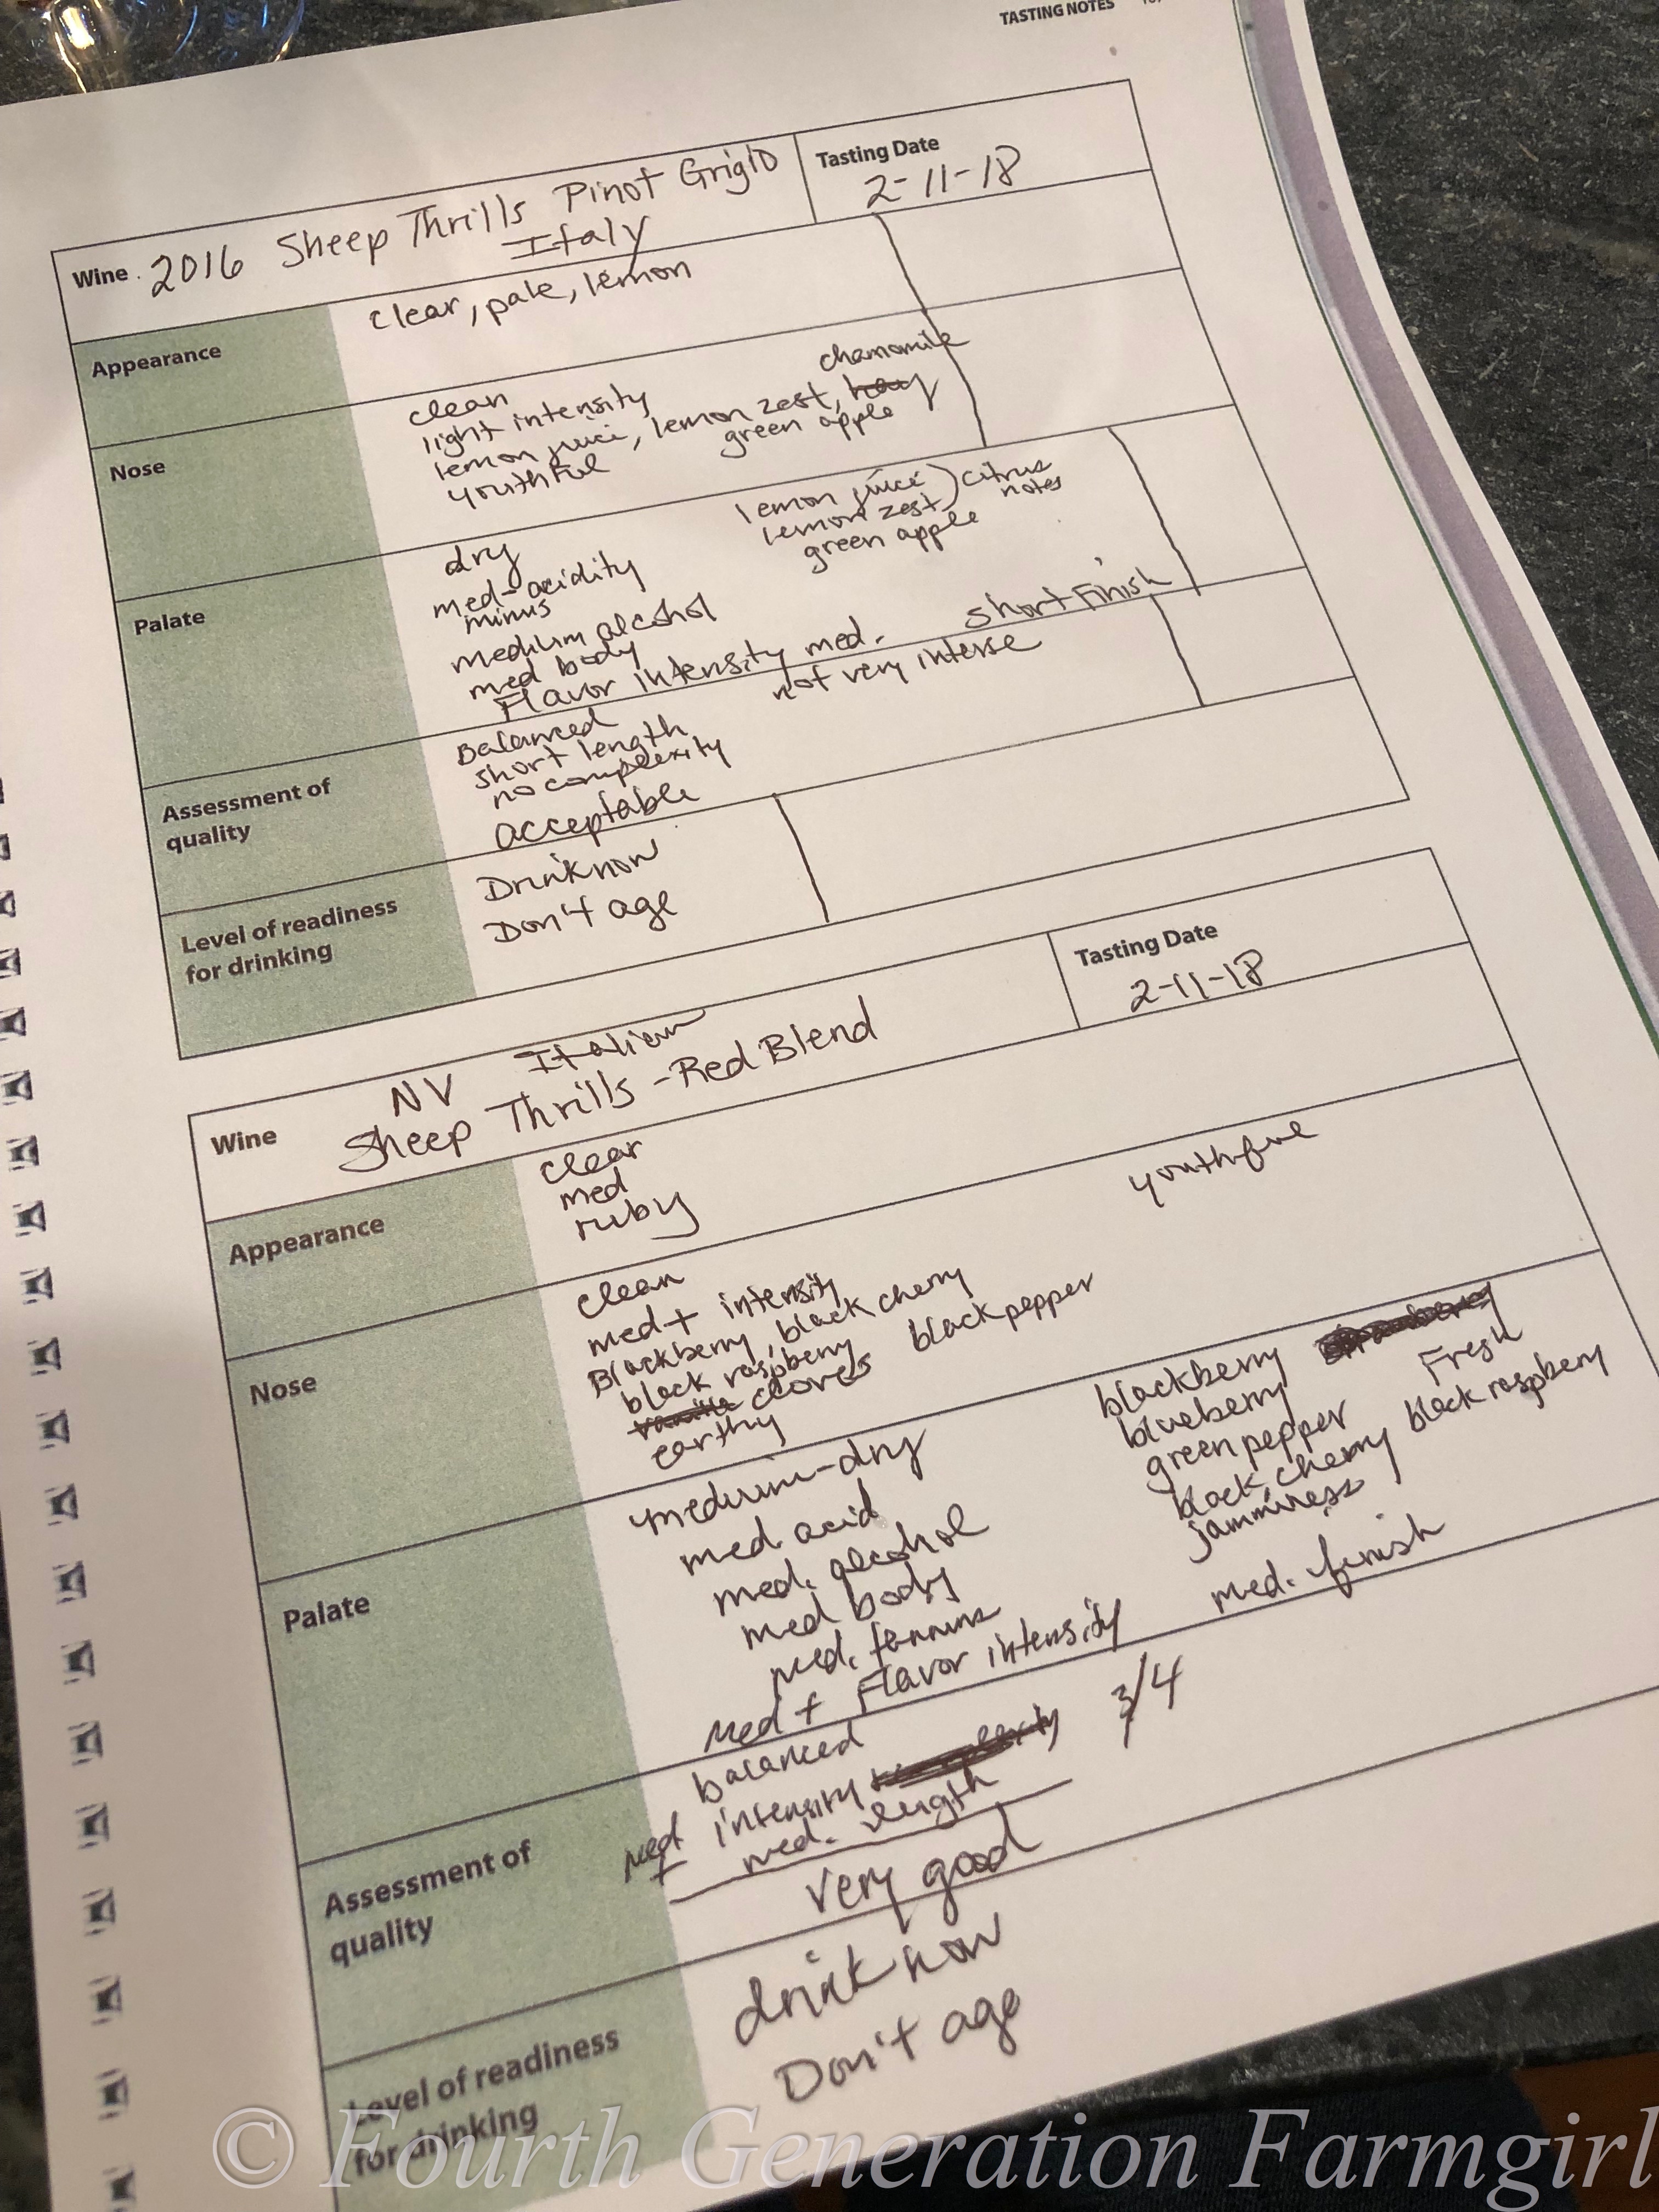 TASTING NOTES
Wine 2016 Sheep Thrills Pinot Grigio
Italy
Tasting Date
2-11-18
Appearance
clear, pale, lemon
Nose
clean
light intensity
chamomile
lemon juice, lemon zest,
green apple
youthful
Palate
dry
med- acidity
minus
medium alcohol
med body
Flavor intensity med.
lemon juice ) citrus
lemon zest notes
green apple
short finish
Assessment of
quality
Balanced
short length
no complexity
not very intense
acceptable
Level of readiness
for drinking
Drink now
Don't age
Wine
NV Italian
Sheep Thrills - Red Blend
Tasting Date
2-11-18
Appearance
clear
med
ruby
Nose
clean
youthful
med+ intensity
Blackberry, black cherry
black raspberry
black pepper
cloves
earthy
Palate
medium-dry
med. acid
med. alcohol
med body
med. tannins
med + Flavor intensity
blackberry
blueberry
Fresh
green pepper
black cherry black raspberry
jamminess
med. finish
Assessment of
quality
balanced
med + intensity
med. length
3/4
very good
Level of readiness
for drinking
drink now
Don't age
© Fourth Generation Farmgirl